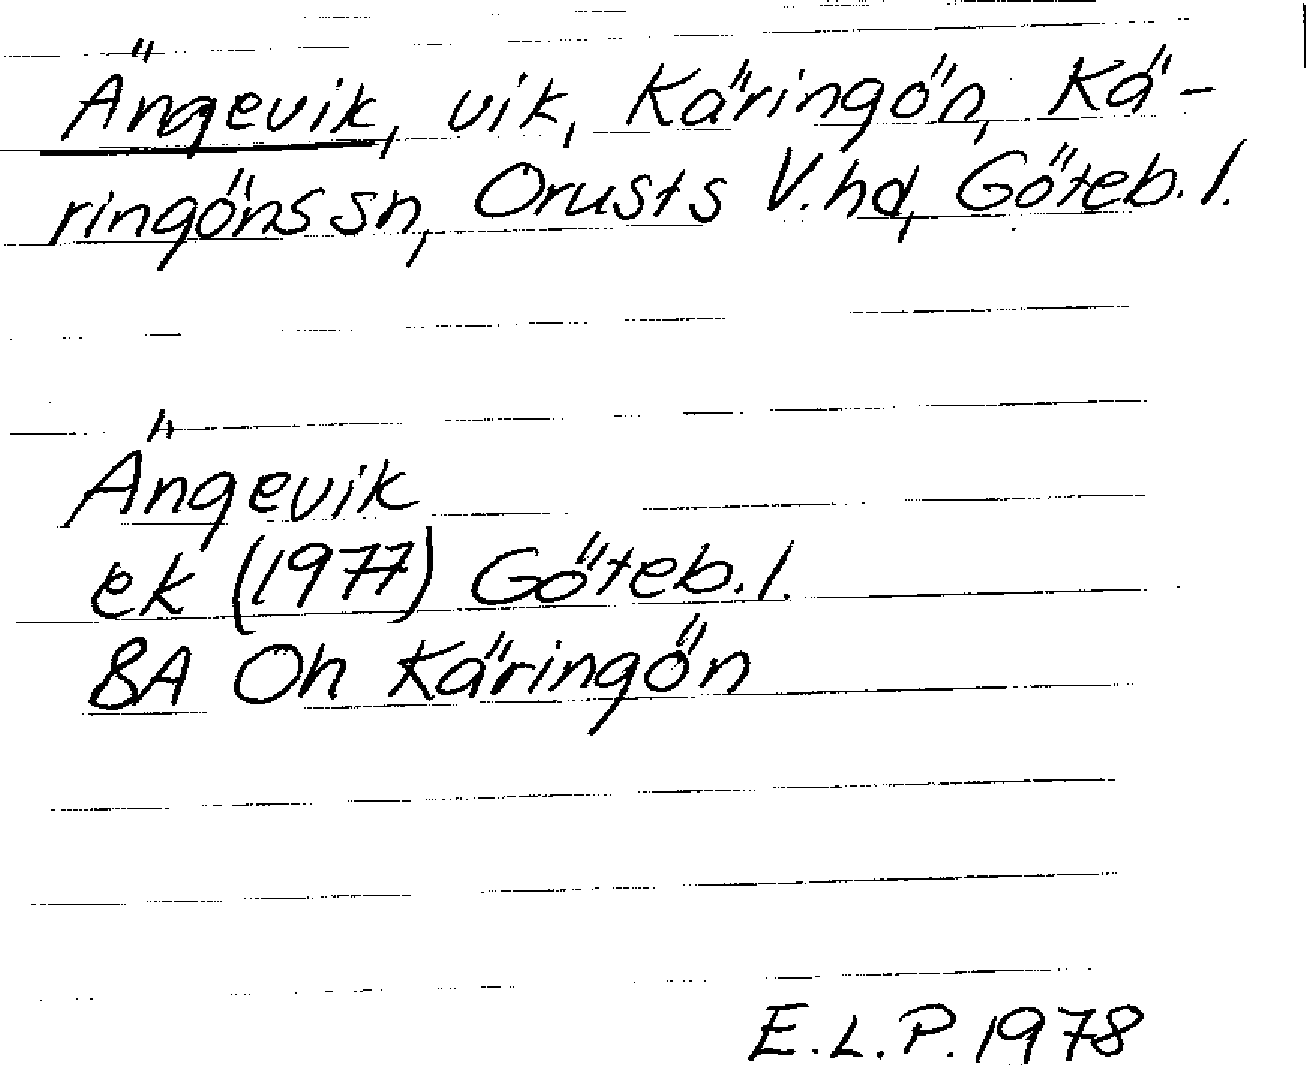 Ängevik, vik, Käringön, Kä-
ringöns sn, Orusts V. hd, Göteb. l.
Ängevik
ek (1977) Göteb. l.
8A Oh Käringön
E.L.P. 1978